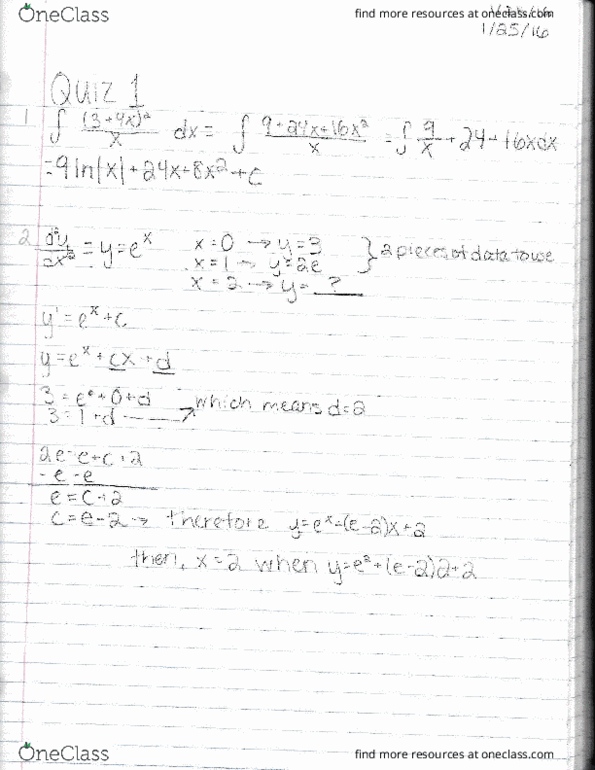 OneClass
find more resources at oneclass.com
1/25/16
Quiz 1
1 ∫ (3+4x)²/x dx = ∫ 9+24x+16x²/x = ∫ 9/x + 24 + 16xdx
= 9 ln|x| + 24x + 8x² + c
2 d²y/dx² = y = eˣ x=0 → y=3
x=1 → y=2e } 2 pieces of data to use
x=2 → y= ?
y' = eˣ + c
y = eˣ + cx + d
3 = e⁰ + 0 + d
3 = 1 + d → which means d=2
2e = e + c + 2
-e -e
e = c + 2
c = e - 2 → therefore y = eˣ + (e-2)x + 2
then, x=2 when y = e² + (e-2)2 + 2
OneClass
find more resources at oneclass.com